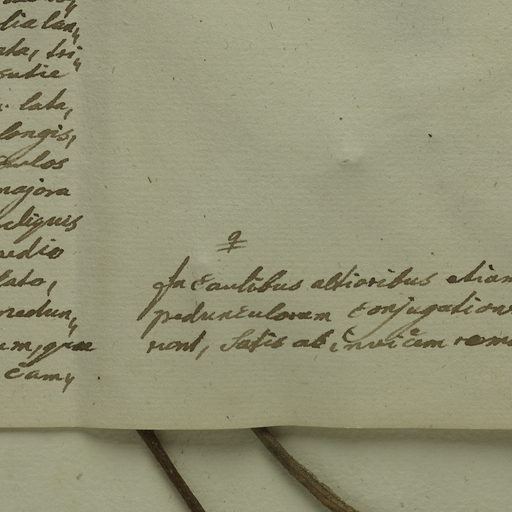 lia lan„
ata, tri„
lata,
longis,
caulos
majora
reliquis
medio
lato,
pedun„
um, quae
cam„
♀
In Caulibus altioribus etiam
pedunculorum Conjugation
niont, Satis ab invicem remo